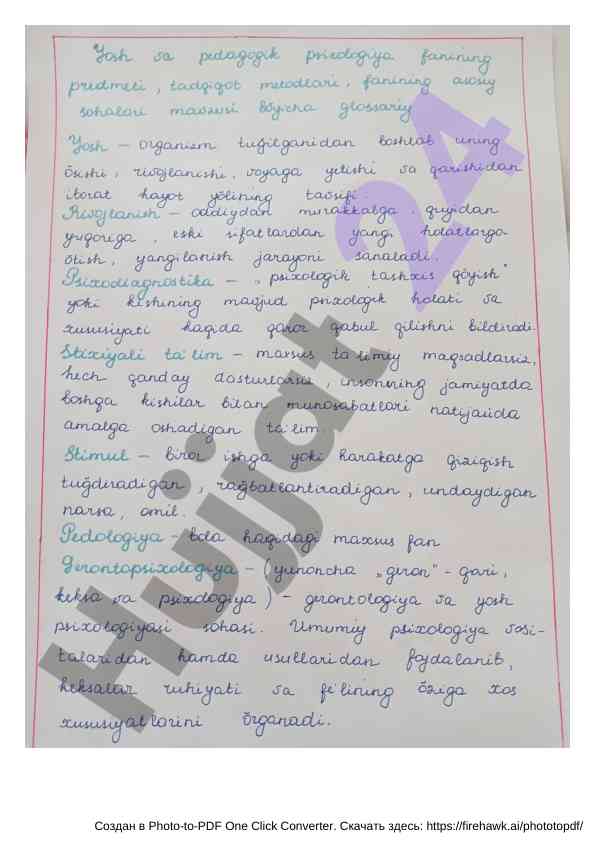 Yosh va pedagogik psixologiya fanining
predmeti, tadqiqot metodlari, fanining asosiy
sohalari mavzusi bõyicha glossariy
Yosh – organizm tuğilganidan boshlab uning
õsishi, rivojlanishi, voyaga yetishi va qarishidan
iborat hayot yõlining tavsifi.
Rivojlanish – oddiydan murakkabga, quyidan
yuqoriga, eski sifatlardan yangi holatlarga
õtish, yangilanish jarayoni sanaladi.
Psixodiagnostika – „psixologik tashxis qõyish"
yoki kishining mavjud psixologik holati va
xususiyati haqida qaror qabul qilishni bildiradi.
Stixiyali ta'lim – maxsus ta'limiy maqsadlarsiz,
hech qanday dasturlarsiz, insonning jamiyatda
boshqa kishilar bilan munosabatlari natijasida
amalga oshadigan ta'lim.
Stimul – biror ishga yoki harakatga qiziqish
tuğdiradigan, rağbatlantiradigan, undaydigan
narsa, omil.
Pedologiya – bola haqidagi maxsus fan
Gerontopsixologiya – (yunoncha „geron" – qari,
keksa va psixologiya) – gerontologiya va yosh
psixologiyasi sohasi. Umumiy psixologiya vosi-
talaridan hamda usullaridan foydalanib,
keksalar ruhiyati va fe'lining õziga xos
xususiyatlarini õrganadi.
Hujjat 24
Создан в Photo-to-PDF One Click Converter. Скачать здесь: https://firehawk.ai/phototopdf/